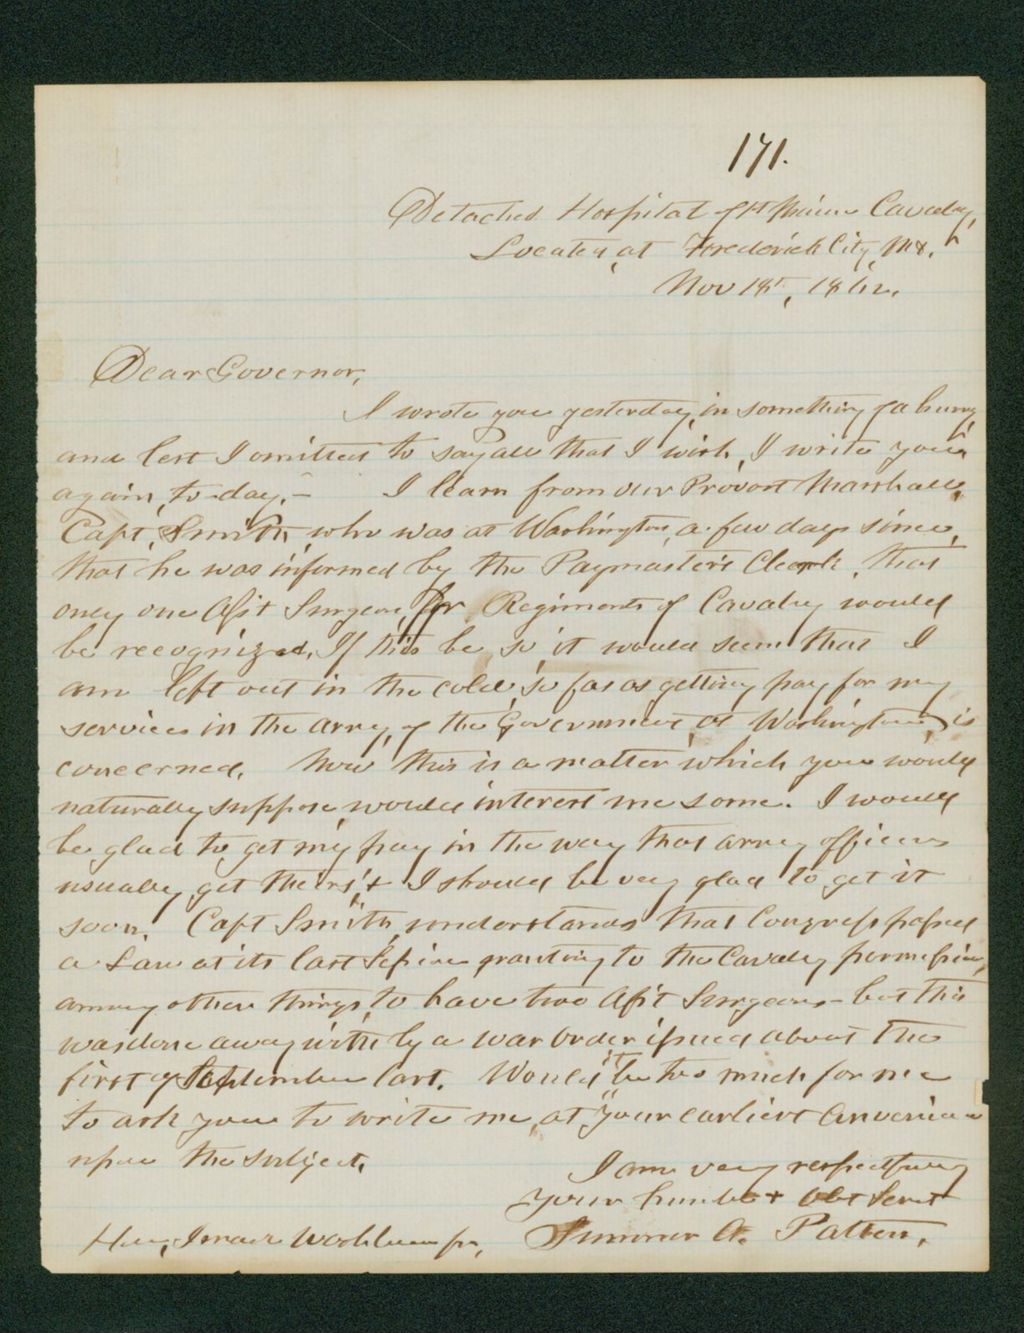 171.
Detached Hospital of 1st Maine Cavalry,
Located, at Frederick City, Md.
Nov 18th, 1862.
Dear Governor,
I wrote you yesterday, in something of a hurry,
and lest I omitted to say all that I wish, I write you
again, to-day. – I learn from our Provost Marshall,
Capt, Smith, who was at Washington, a few days since,
that he was informed by the Paymaster's Clerk, that
only one Ass't Surgeon, for Regiments of Cavalry would
be recognized. If this be so, it would seem that I
am left out in the cold so far as getting pay for my
services in the army, of the Government, at Washington, is
concerned. Now this is a matter which you would
naturally suppose, would interest me some. I would
be glad to get my pay in the way that army officers
usually get theirs, & I should be very glad to get it
soon. Capt Smith, understands that Congress passed
a Law at its last Session granting to the Cavalry permission,
among other things, to have two Ass't Surgeons – but this
was done away with by a War Order issued about the
first of September last. Would it be too much for me
to ask you to write me, at your earliest convenience
upon the subject.
I am very respectfully
Your humble & Obt Servt
Hon, Israel Washburn jr, Sumner A. Patten.